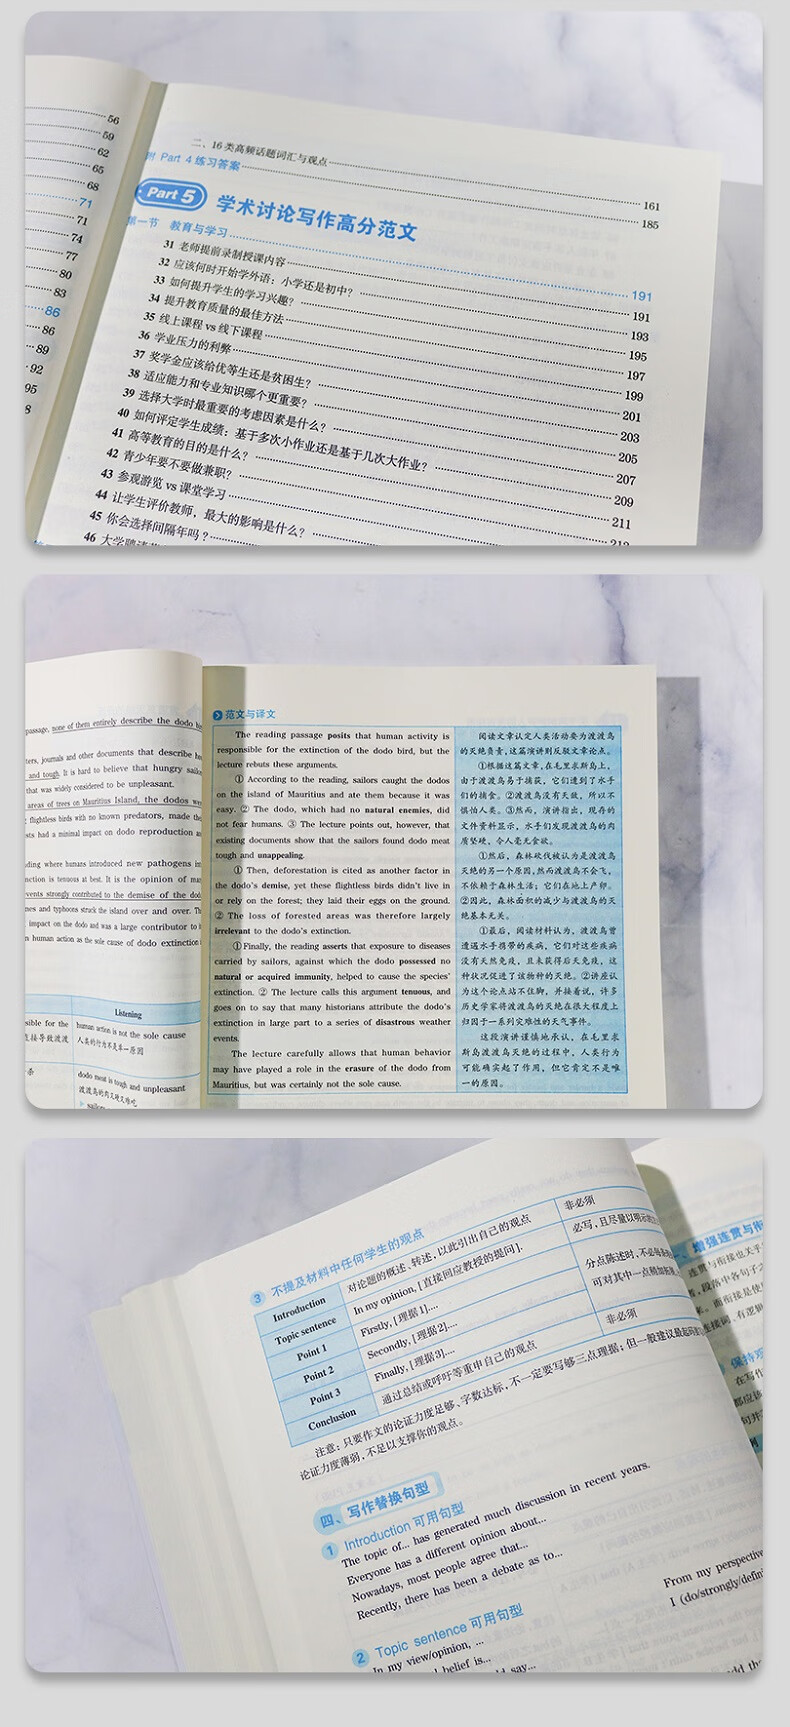 56
59
62
65
68
71
71
74
77
80
83
86
86
89
92
95
8
二、16类高频话题词汇与观点 161
附 Part 4 练习答案 185
Part 5 学术讨论写作高分范文
第一节 教育与学习 191
31 老师提前录制授课内容 191
32 应该何时开始学外语：小学还是初中？ 193
33 如何提升学生的学习兴趣？ 195
34 提升教育质量的最佳方法 197
35 线上课程 vs 线下课程 199
36 学业压力的利弊 201
37 奖学金应该给优等生还是贫困生？ 203
38 适应能力和专业知识哪个更重要？ 205
39 选择大学时最重要的考虑因素是什么？ 207
40 如何评定学生成绩：基于多次小作业还是基于几次大作业？ 209
41 高等教育的目的是什么？ 211
42 青少年要不要做兼职？
43 参观游览 vs 课堂学习
44 让学生评价教师，最大的影响是什么？
45 你会选择间隔年吗？
46 大学
passage, none of them entirely describe the dodo
ters, journals and other documents that describe
and tough. It is hard to believe that hungry
that was widely considered to be unpleasant.
areas of trees on Mauritius Island, the dodos
flightless birds with no known predators, made the
sts had a minimal impact on dodo reproduction
ding where humans introduced new pathogens
nction is tenuous at best. It is the opinion of
vents strongly contributed to the demise of the
nes and typhoons struck the island over and over.
impact on the dodo and was a large contributor to
n human action as the sole cause of dodo extinction
Listening
sible for the
human action is not the sole cause
直接导致渡渡
人类的行为不是单一原因
条
dodo meat is tough and unpleasant
渡渡鸟的肉又硬又难吃
范文与译文
The reading passage posits that human activity is
responsible for the extinction of the dodo bird, but the
lecture rebuts these arguments.
① According to the reading, sailors caught the dodos
on the island of Mauritius and ate them because it was
easy. ② The dodo, which had no natural enemies, did
not fear humans. ③ The lecture points out, however, that
existing documents show that the sailors found dodo meat
tough and unappealing.
① Then, deforestation is cited as another factor in
the dodo's demise, yet these flightless birds didn't live in
or rely on the forest; they laid their eggs on the ground.
② The loss of forested areas was therefore largely
irrelevant to the dodo's extinction.
①Finally, the reading asserts that exposure to diseases
carried by sailors, against which the dodo possessed no
natural or acquired immunity, helped to cause the species'
extinction. ② The lecture calls this argument tenuous, and
goes on to say that many historians attribute the dodo's
extinction in large part to a series of disastrous weather
events.
The lecture carefully allows that human behavior
may have played a role in the erasure of the dodo from
Mauritius, but was certainly not the sole cause.
阅读文章认定人类活动要为渡渡鸟
的灭绝负责，这篇演讲则反驳文章论点。
①根据这篇文章，在毛里求斯岛上，
由于渡渡鸟易于捕获，它们遭到了水手
们的捕食。②渡渡鸟没有天敌，所以不
惧怕人类。③然而，演讲指出，现存的
文件资料显示，水手们发现渡渡鸟的肉
质坚硬，令人毫无食欲。
①然后，森林砍伐被认为是渡渡鸟
灭绝的另一个原因，然而渡渡鸟不会飞，
不依赖于森林生活；它们在地上产卵。
②因此，森林面积的减少与渡渡鸟的灭
绝基本无关。
①最后，阅读材料认为，渡渡鸟曾
遭遇水手携带的疾病，它们对这些疾病
没有天然免疫，且未获得后天免疫，这
种状况促进了该物种的灭绝。②讲座认
为这个论点站不住脚，并接着说，许多
历史学家将渡渡鸟的灭绝在很大程度上
归因于一系列灾难性的天气事件。
这段演讲谨慎地承认，在毛里求
斯岛渡渡鸟灭绝的过程中，人类行为
可能确实起了作用，但它肯定不是唯
一的原因。
3 不提及材料中任何学生的观点
Introduction 对论题的概述、转述，以此引出自己的观点 非必须
Topic sentence In my opinion, [直接回应教授的提问]. 必写，且尽量以明示
Point 1 Firstly, [理据1]....
Point 2 Secondly, [理据2]....
Point 3 Finally, [理据3]....
分点陈述时，不必
可对其中一点稍加
Conclusion 通过总结或呼吁等重申自己的观点 非必须
注意：只要作文的论证力度足够、字数达标，不一定要写够三点理据；但一般建议最
论证力度薄弱，不足以支撑你的观点。
四、写作替换句型
1 Introduction 可用句型
The topic of... has generated much discussion in recent years.
Everyone has a different opinion about...
Nowadays, most people agree that...
Recently, there has been a debate as to...
2 Topic sentence 可用句型
In my view/opinion, ...
belief is...
say...
增强连贯与
连贯与衔接也关乎
段落中各句子之
而衔接是使
连接词、有逻辑
保持
在写作
都应
From my perspective
I (do/strongly/defin